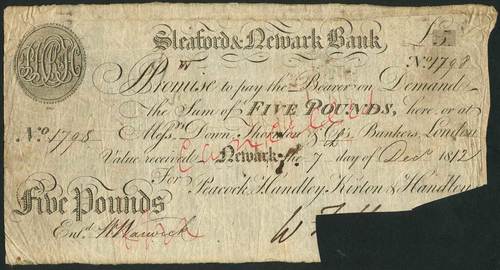 Sleaford & Newark Bank
£5
No 1798
I Promise to pay the Bearer on Demand
the Sum of FIVE POUNDS, here, or at
No 1798
Messrs Down, Thornton & Co's Bankers, London
Cancelled
Value received Newark the 7 day of Decr 1812
For Peacock, Handley, Kirton & Handley
Five Pounds
Entd
W